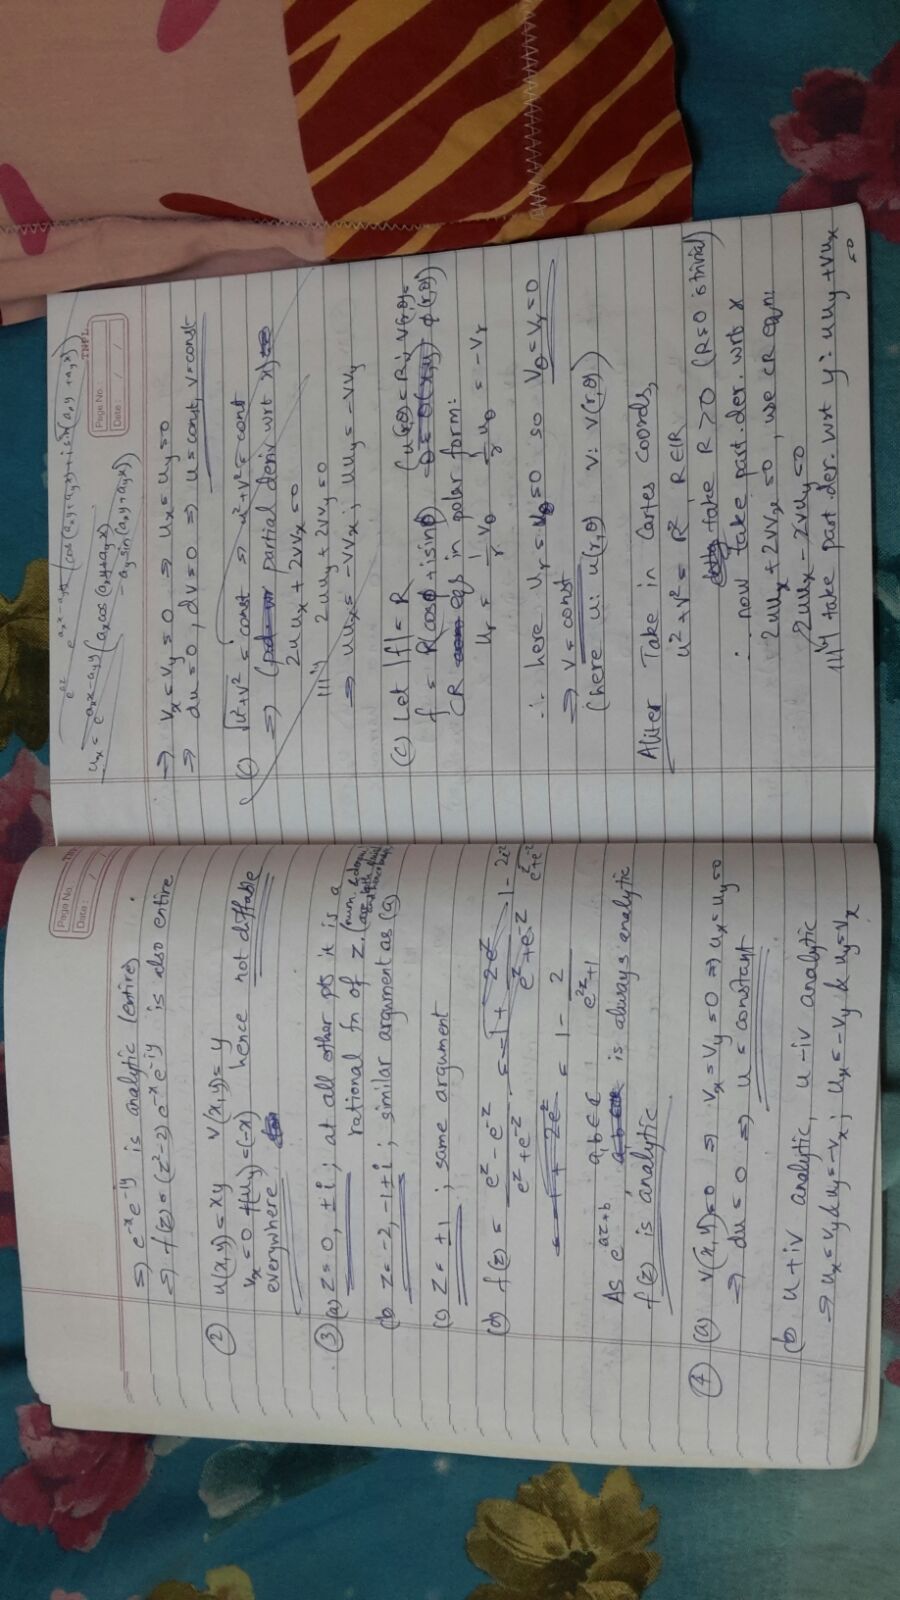 Page No.
Date:
⇒ e^-x e^-iy is analytic (entire)
⇒ f(z) = (z²-2) e^-x e^-iy is also entire
② u(x,y) = xy v(x,y) = y
v_x = 0 ≠ (u_y) = (-x) hence not diff'able
everywhere
③ (a) z = 0, ± i ; at all other pts it is a
rational fn of z. (num. & denom.
are both
(b) z = -2, -1 ± i ; similar argument as (a)
(c) z = ± 1 ; same argument
(d) f(z) = e^z - e^-z / e^z + e^-z = -1 + 2e^z / e^z + e^-z
= 1 - 2 / e^2z + 1
As e^az+b a, b ∈ ℂ is always analytic
f(z) is analytic
④ (a) v(x,y) = 0 ⇒ v_x = v_y = 0 ⇒ u_x = u_y = 0
⇒ du = 0 ⇒ u = constant
(b) u + iv analytic, u - iv analytic
⇒ u_x = v_y & u_y = -v_x ; u_x = -v_y & u_y = v_x
e^az e^a₁x - a₂y (cos(a₂x + a₁y) + i sin(a₂x + a₁y))
Page No.
Date:
⇒ v_x = v_y = 0 ⇒ u_x = u_y = 0
⇒ du = 0, dv = 0 ⇒ u = const, v = const
(c) √u² + v² = const ⇒ u² + v² = const
⇒ (partial deriv wrt x)
2u u_x + 2v v_x = 0
III^ly 2u u_y + 2v v_y = 0
⇒ u u_x = -v v_x ; u u_y = -v v_y
(c) Let |f| = R
f = R(cosϕ + i sinϕ) (u(r,θ) = R ; v(r,θ) = ϕ(r,θ))
CR eqs in polar form:
u_r = 1/r v_θ 1/r u_θ = -v_r
∴ here u_r = u_θ = 0 so v_θ = v_r = 0
⇒ v = const
(here u: u(r,θ) v: v(r,θ))
Aliter Take in Cartes coords,
u² + v² = R² R ∈ ℝ
take R > 0 (R = 0 is trivial)
∴ now take part. der. wrt x
2u u_x + 2v v_x = 0, use CR eqn:
2u u_x - 2v u_y = 0
III^ly take part. der. wrt y: u u_y + v u_x = 0